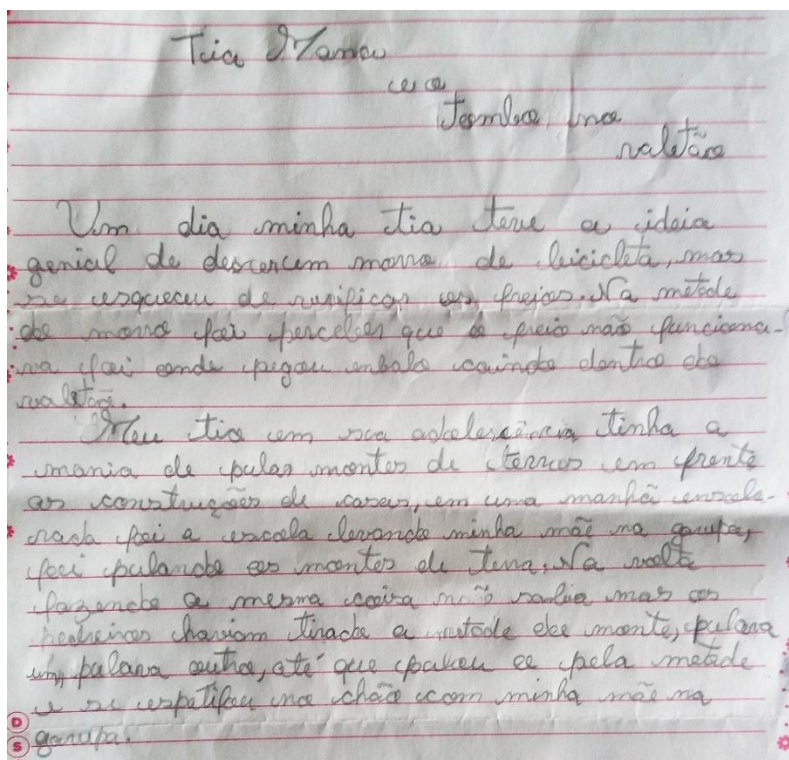 Tia Mana
e o
Tombo no
valetão
Um dia minha tia teve a ideia
genial de descerem morro de bicicleta, mas
se esqueceu de verificar os freios. Na metade
do morro foi perceber que o freio não funciona-
va foi onde pegou embalo caindo dentro do
valetão.
Meu tio em sua adolescência tinha a
mania de pular montes de terras em frente
as construções de casas, em uma manhã ensola-
rada foi a escola levando minha mãe na garupa,
foi pulando os montes de terra. Na volta
fazendo a mesma coisa não sabia mas os
pedreiros haviam tirado a metade do monte, pulava
um, pulava outro, até que pulou o pela metade
e se espatifou no chão com minha mãe na
garupa.
D
S